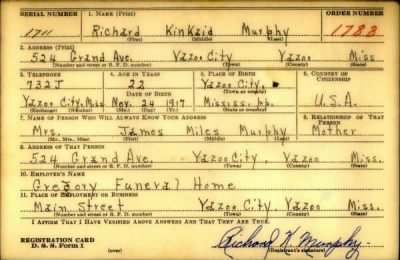 SERIAL NUMBER 1. NAME (Print) ORDER NUMBER
1711 Richard Kinkaid Murphy 1788
(First) (Middle) (Last)
2. ADDRESS (Print)
524 Grand Ave. Yazoo City Yazoo Miss.
(Number and street or R. F. D. number) (Town) (County) (State)
3. TELEPHONE 4. AGE IN YEARS 5. PLACE OF BIRTH 6. COUNTRY OF CITIZENSHIP
732J 22 Yazoo City,
DATE OF BIRTH (Town or county)
Yazoo City, Miss. Nov. 24 1917 Mississippi U.S.A.
(Exchange) (Number) (Mo.) (Day) (Yr.) (State or country)
7. NAME OF PERSON WHO WILL ALWAYS KNOW YOUR ADDRESS 8. RELATIONSHIP OF THAT PERSON
Mrs. James Miles Murphy Mother
(Mr., Mrs., Miss) (First) (Middle) (Last)
9. ADDRESS OF THAT PERSON
524 Grand Ave. Yazoo City, Yazoo Miss.
(Number and street or R. F. D. number) (Town) (County) (State)
10. EMPLOYER'S NAME
Gregory Funeral Home
11. PLACE OF EMPLOYMENT OR BUSINESS
Main Street Yazoo City, Yazoo, Miss.
(Number and street or R. F. D. number) (Town) (County) (State)
I AFFIRM THAT I HAVE VERIFIED ABOVE ANSWERS AND THAT THEY ARE TRUE.
REGISTRATION CARD
D. S. S. Form 1 (over) Richard K. Murphy
(Registrant's signature)